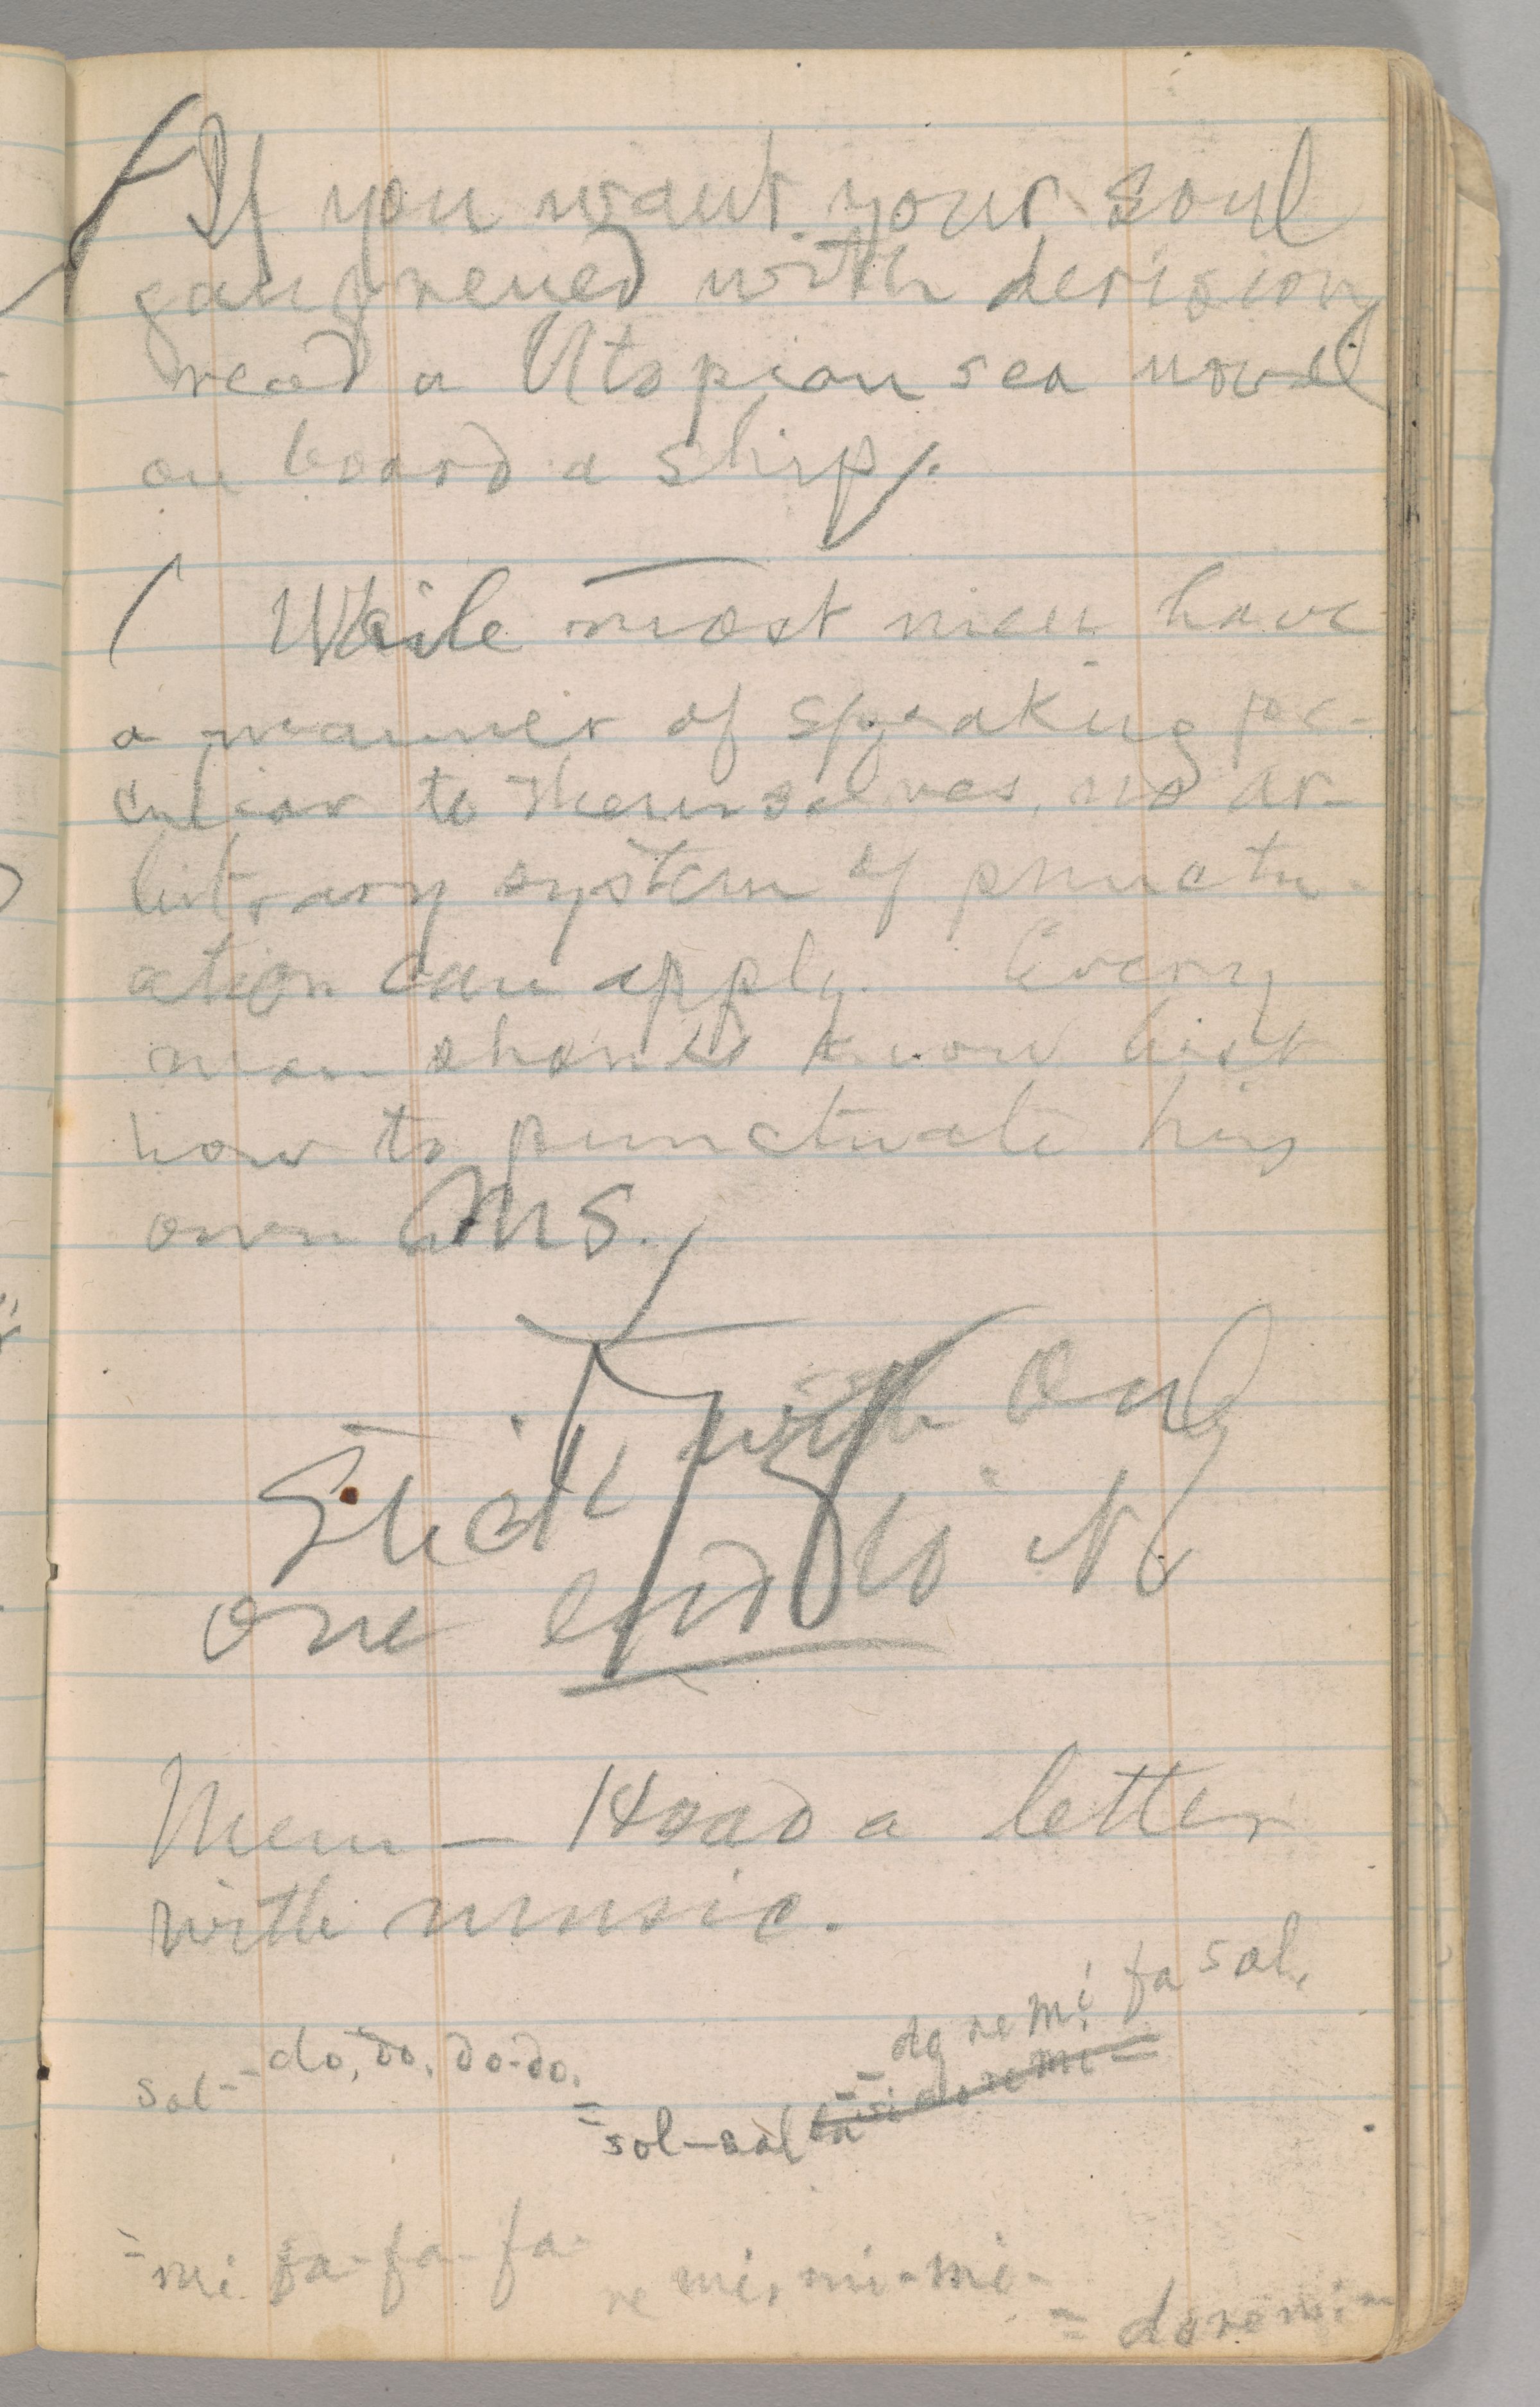 If you want your soul
gangrened with derision
read a Utopian sea novel
on board a ship.
( While most men have
a manner of speaking pe-
culiar to themselves, no ar-
bitrary system of punctu-
ation can apply. Every
man should know best
how to punctuate his
own MS.
Stick with only
one end to it
Mem — Hoad a letter
with music.
sol - do, do, do-do,
= sol-sol la si do re mi =
- do re mi fa sol,
- mi fa-fa-fa-
re mi, mi-mi-
= do re mi -